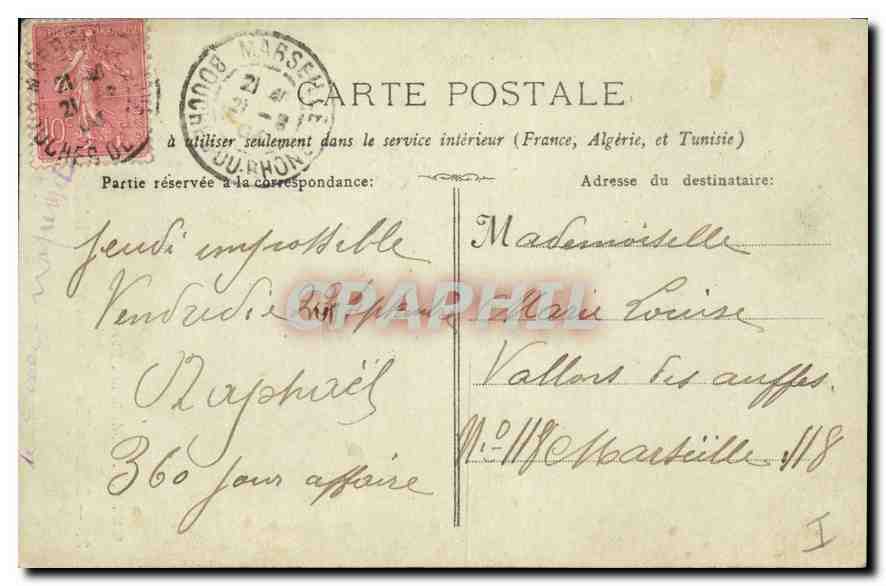 MARSEILLE
BOUCHES DU-RHONE
21
10
CARTE POSTALE
à utiliser seulement dans le service intérieur (France, Algérie, et Tunisie)
Partie réservée à la correspondance:
Adresse du destinataire:
Jeudi impossible
Vendredi
Raphaël
360 jour affaire
Mademoiselle
Marie Louise
Vallons des auffes.
No 118 Marseille 118
CPAPHIL
I